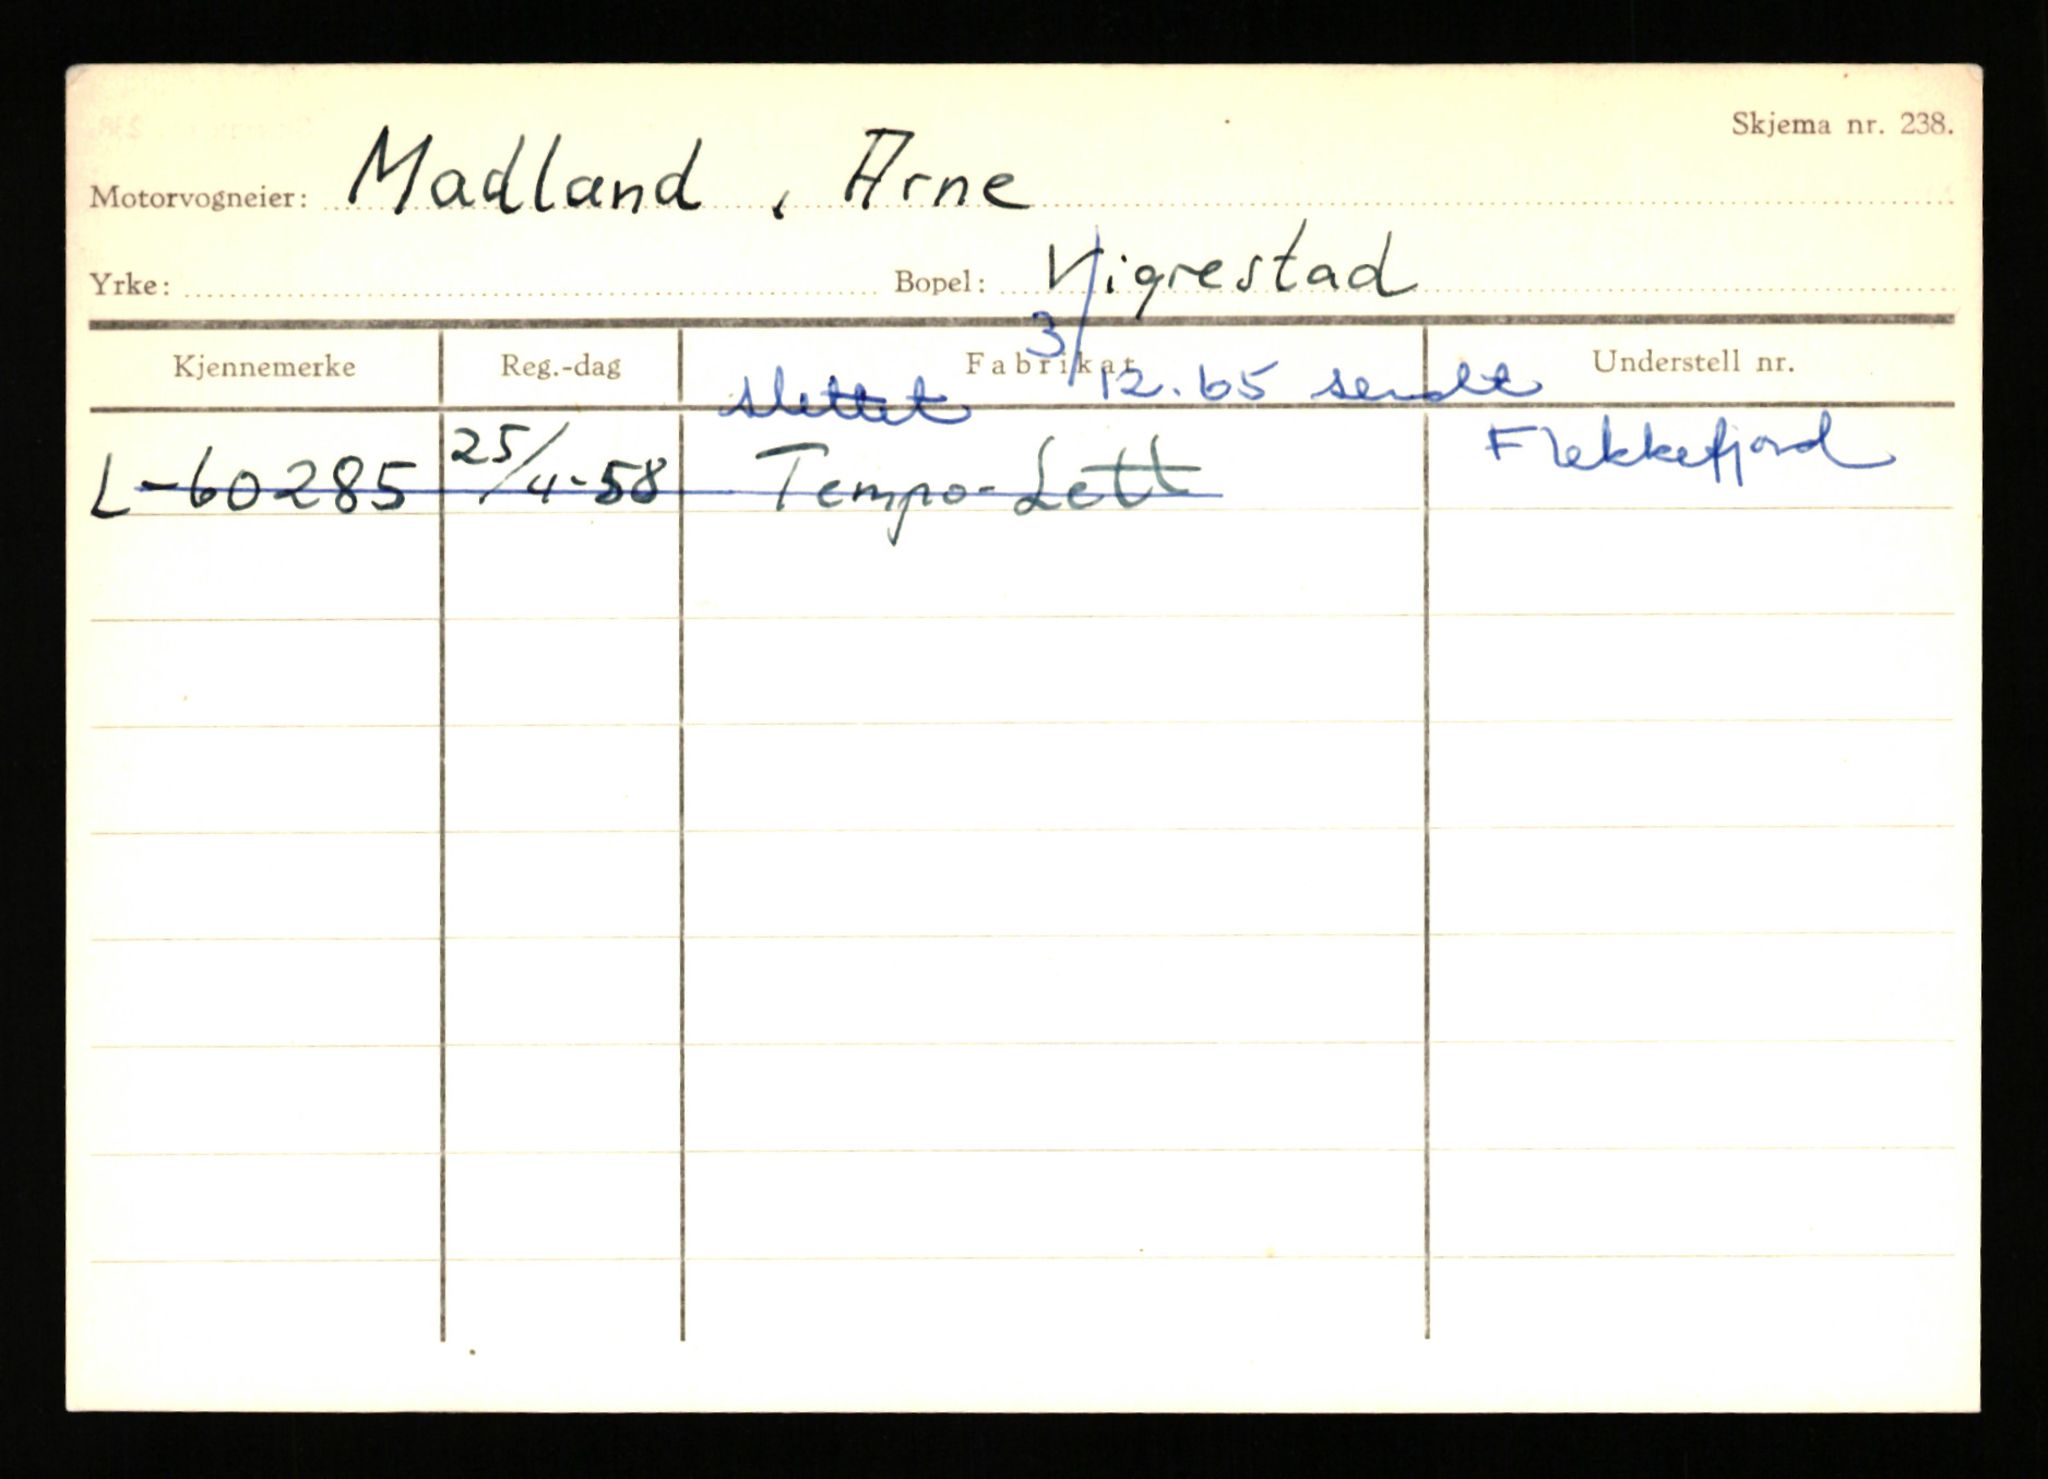 Skjema nr. 238.
Motorvogneier: Madland, Arne
Yrke: Bopel: Vigrestad
Kjennemerke Reg.-dag Fabrikat Understell nr.
slettet 3/12.65 sendt
Flekkefjord
L-60285 25/4-58 Tempo-Lett